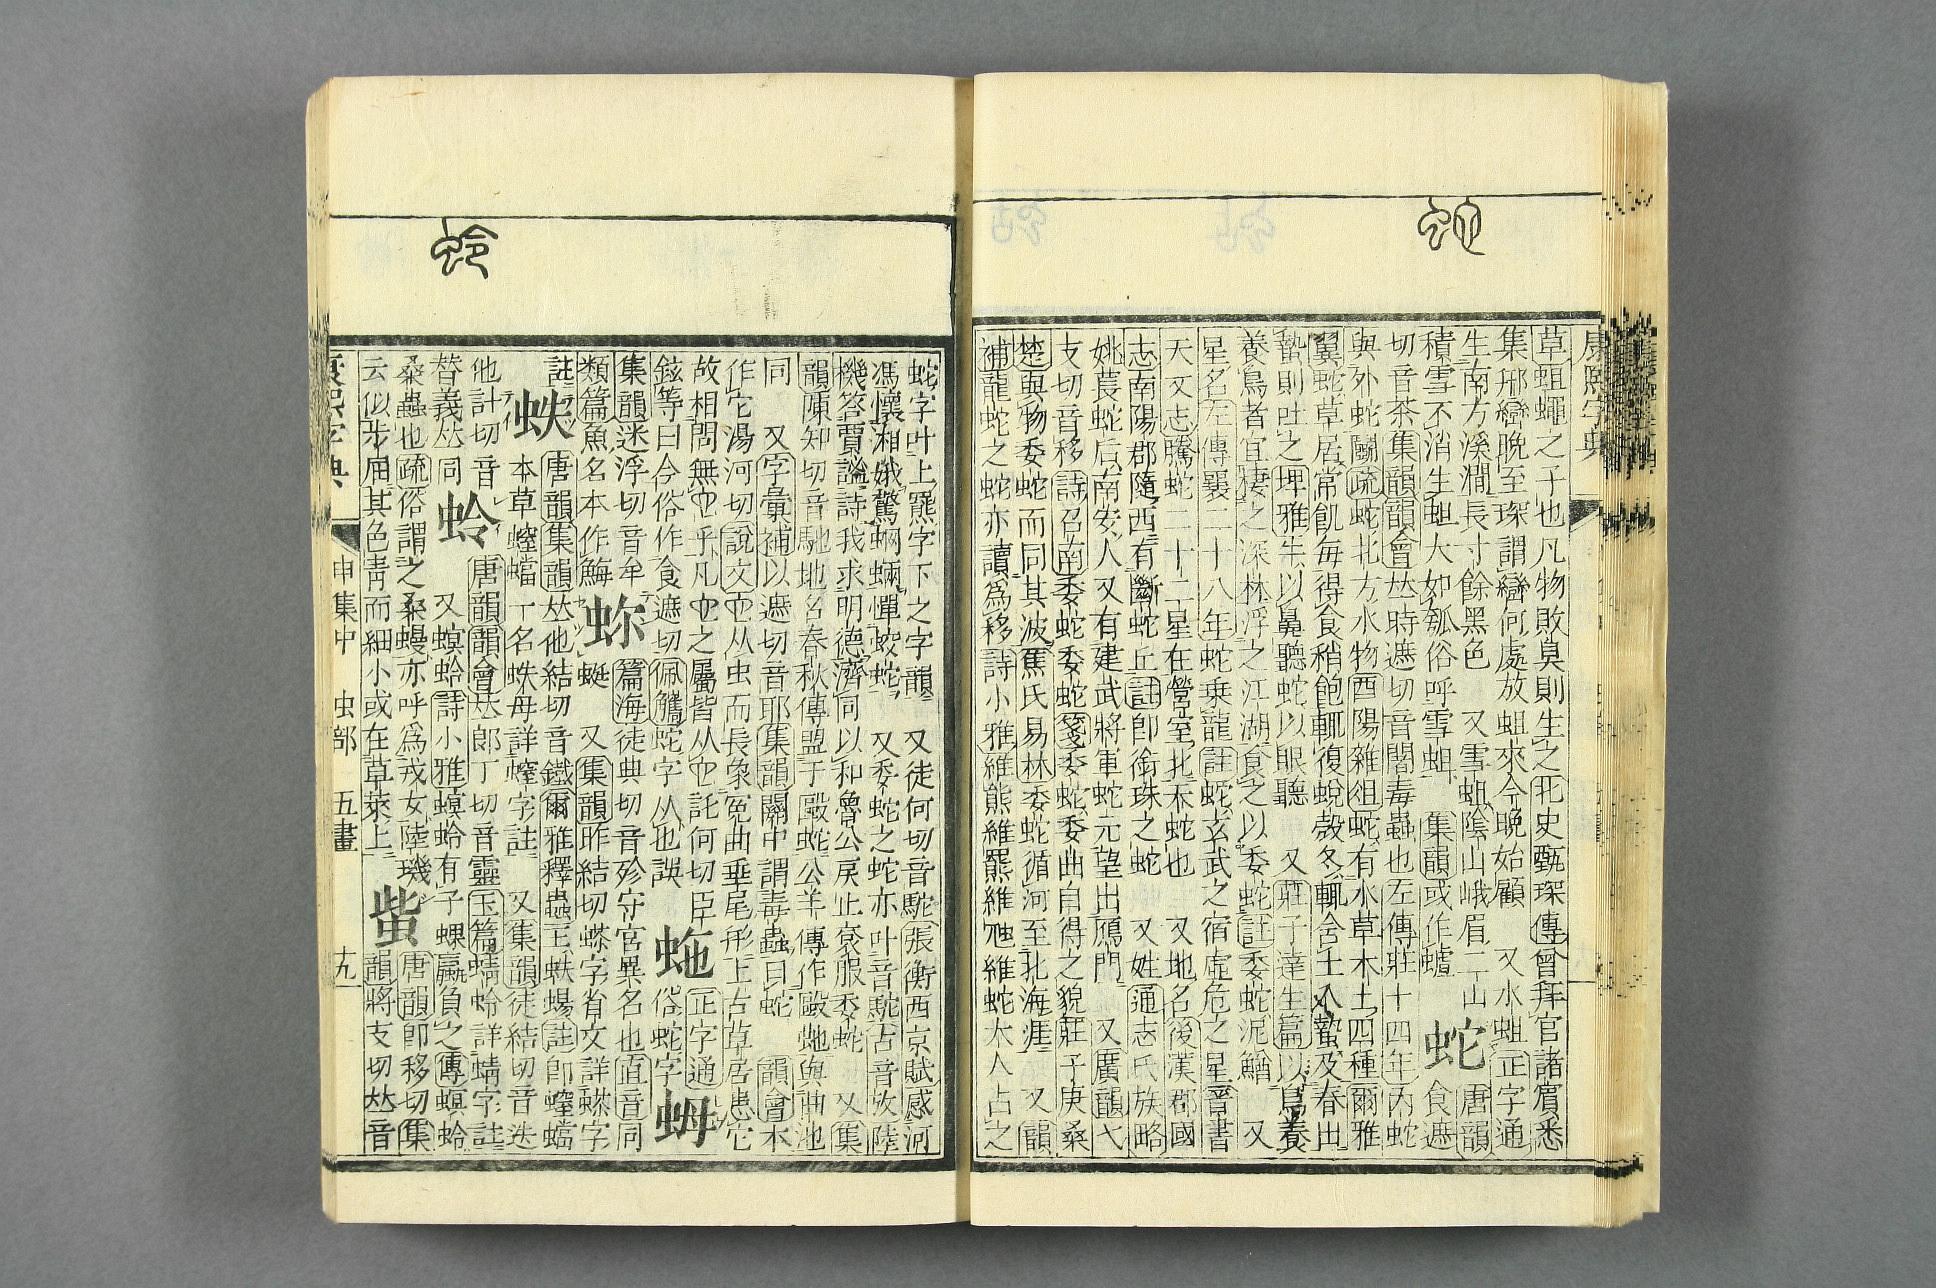 蛇
康熙字典
草蛆蠅之子也凡物敗臭則生之北史甄琛傳曾拜官諸賓悉
集邢巒晚至琛謂巒何處放蛆來今晚始顧 又水蛆正字通
生南方溪澗長寸餘黑色 又雪蛆陰山峨眉二山
積雪不消生蛆大如瓠俗呼雪蛆 集韻或作蠦 蛇 唐韻食遮
切音茶集韻韻會𠀤時遮切音闍毒蟲也左傳莊十四年內蛇
與外蛇鬭疏蛇北方水物酉陽雜俎蛇有水草木土四種爾雅
翼蛇草居常飢每得食稍飽輒復蛻殼冬輒含土入蟄及春出
蟄則吐之埤雅牛以鼻聽蛇以眼聽 又莊子達生篇以鳥養
養鳥者宜棲之深林浮之江湖食之以委蛇註委蛇泥鰌 又
星名左傳襄二十八年蛇乗龍註蛇玄武之宿虛危之星晉書
天文志騰蛇二十二星在營室北天蛇也 又地名後漢郡國
志南陽郡隨西有斷蛇丘註卽銜珠之蛇 又姓通志氏族略
姚萇蛇后南安人又有建武將軍蛇元望出鴈門 又廣韻弋
支切音移詩召南委蛇委蛇箋委蛇委曲自得之貌莊子庚桑
楚與物委蛇而同其波焦氏易林委蛇循河至北海涯 又韻
補龍蛇之蛇亦讀爲移詩小雅維熊維羆維虺維蛇大人占之
蛉
蛇字叶上羆字下之字韻 又徒何切音駝張衡西京賦感河
馮懷湘娥驚蝄蜽憚蛟蛇 又委蛇之蛇亦叶音駝古音攷陸
機答賈謐詩我求明德濟同以和魯公戾止袞服委蛇 又集
韻陳知切音馳地名春秋傳盟于毆蛇公羊傳作毆虵與曲池
同 又字彙補以遮切音耶集韻關中謂毒蟲曰蛇 韻會本
作它湯河切說文它从虫而長象冤曲垂尾形上古草居患它
故相問無它乎凡它之屬皆从它託何切臣
鉉等曰今俗作食遮切佩觿蛇字从也誤 虵 正字通俗蛇字 䖣
集韻迷浮切音牟 蚙 篇海徒典切音殄守宮異名也直音同
類篇魚名本作䱕 蜓 又集韻昨結切蠽字省文詳蠽字
註 蛈 唐韻集韻𠀤他結切音鐵爾雅釋蟲王蛈蝪註卽螲蟷
本草螲蟷一名蛈母詳螲字註 又集韻徒結切音迭
他計切音替義𠀤同 蛉 唐韻韻會𠀤郎丁切音靈玉篇蜻蛉詳蜻字註
又螟蛉詩小雅螟蛉有子蜾蠃負之傳螟蛉
桑蟲也疏俗謂之桑蟃亦呼爲戎女陸璣
云似步屈其色靑而細小或在草萊上 蚩 唐韻卽移切集
韻將支切𠀤音
康熙字典 申集中 虫部 五畫 十九